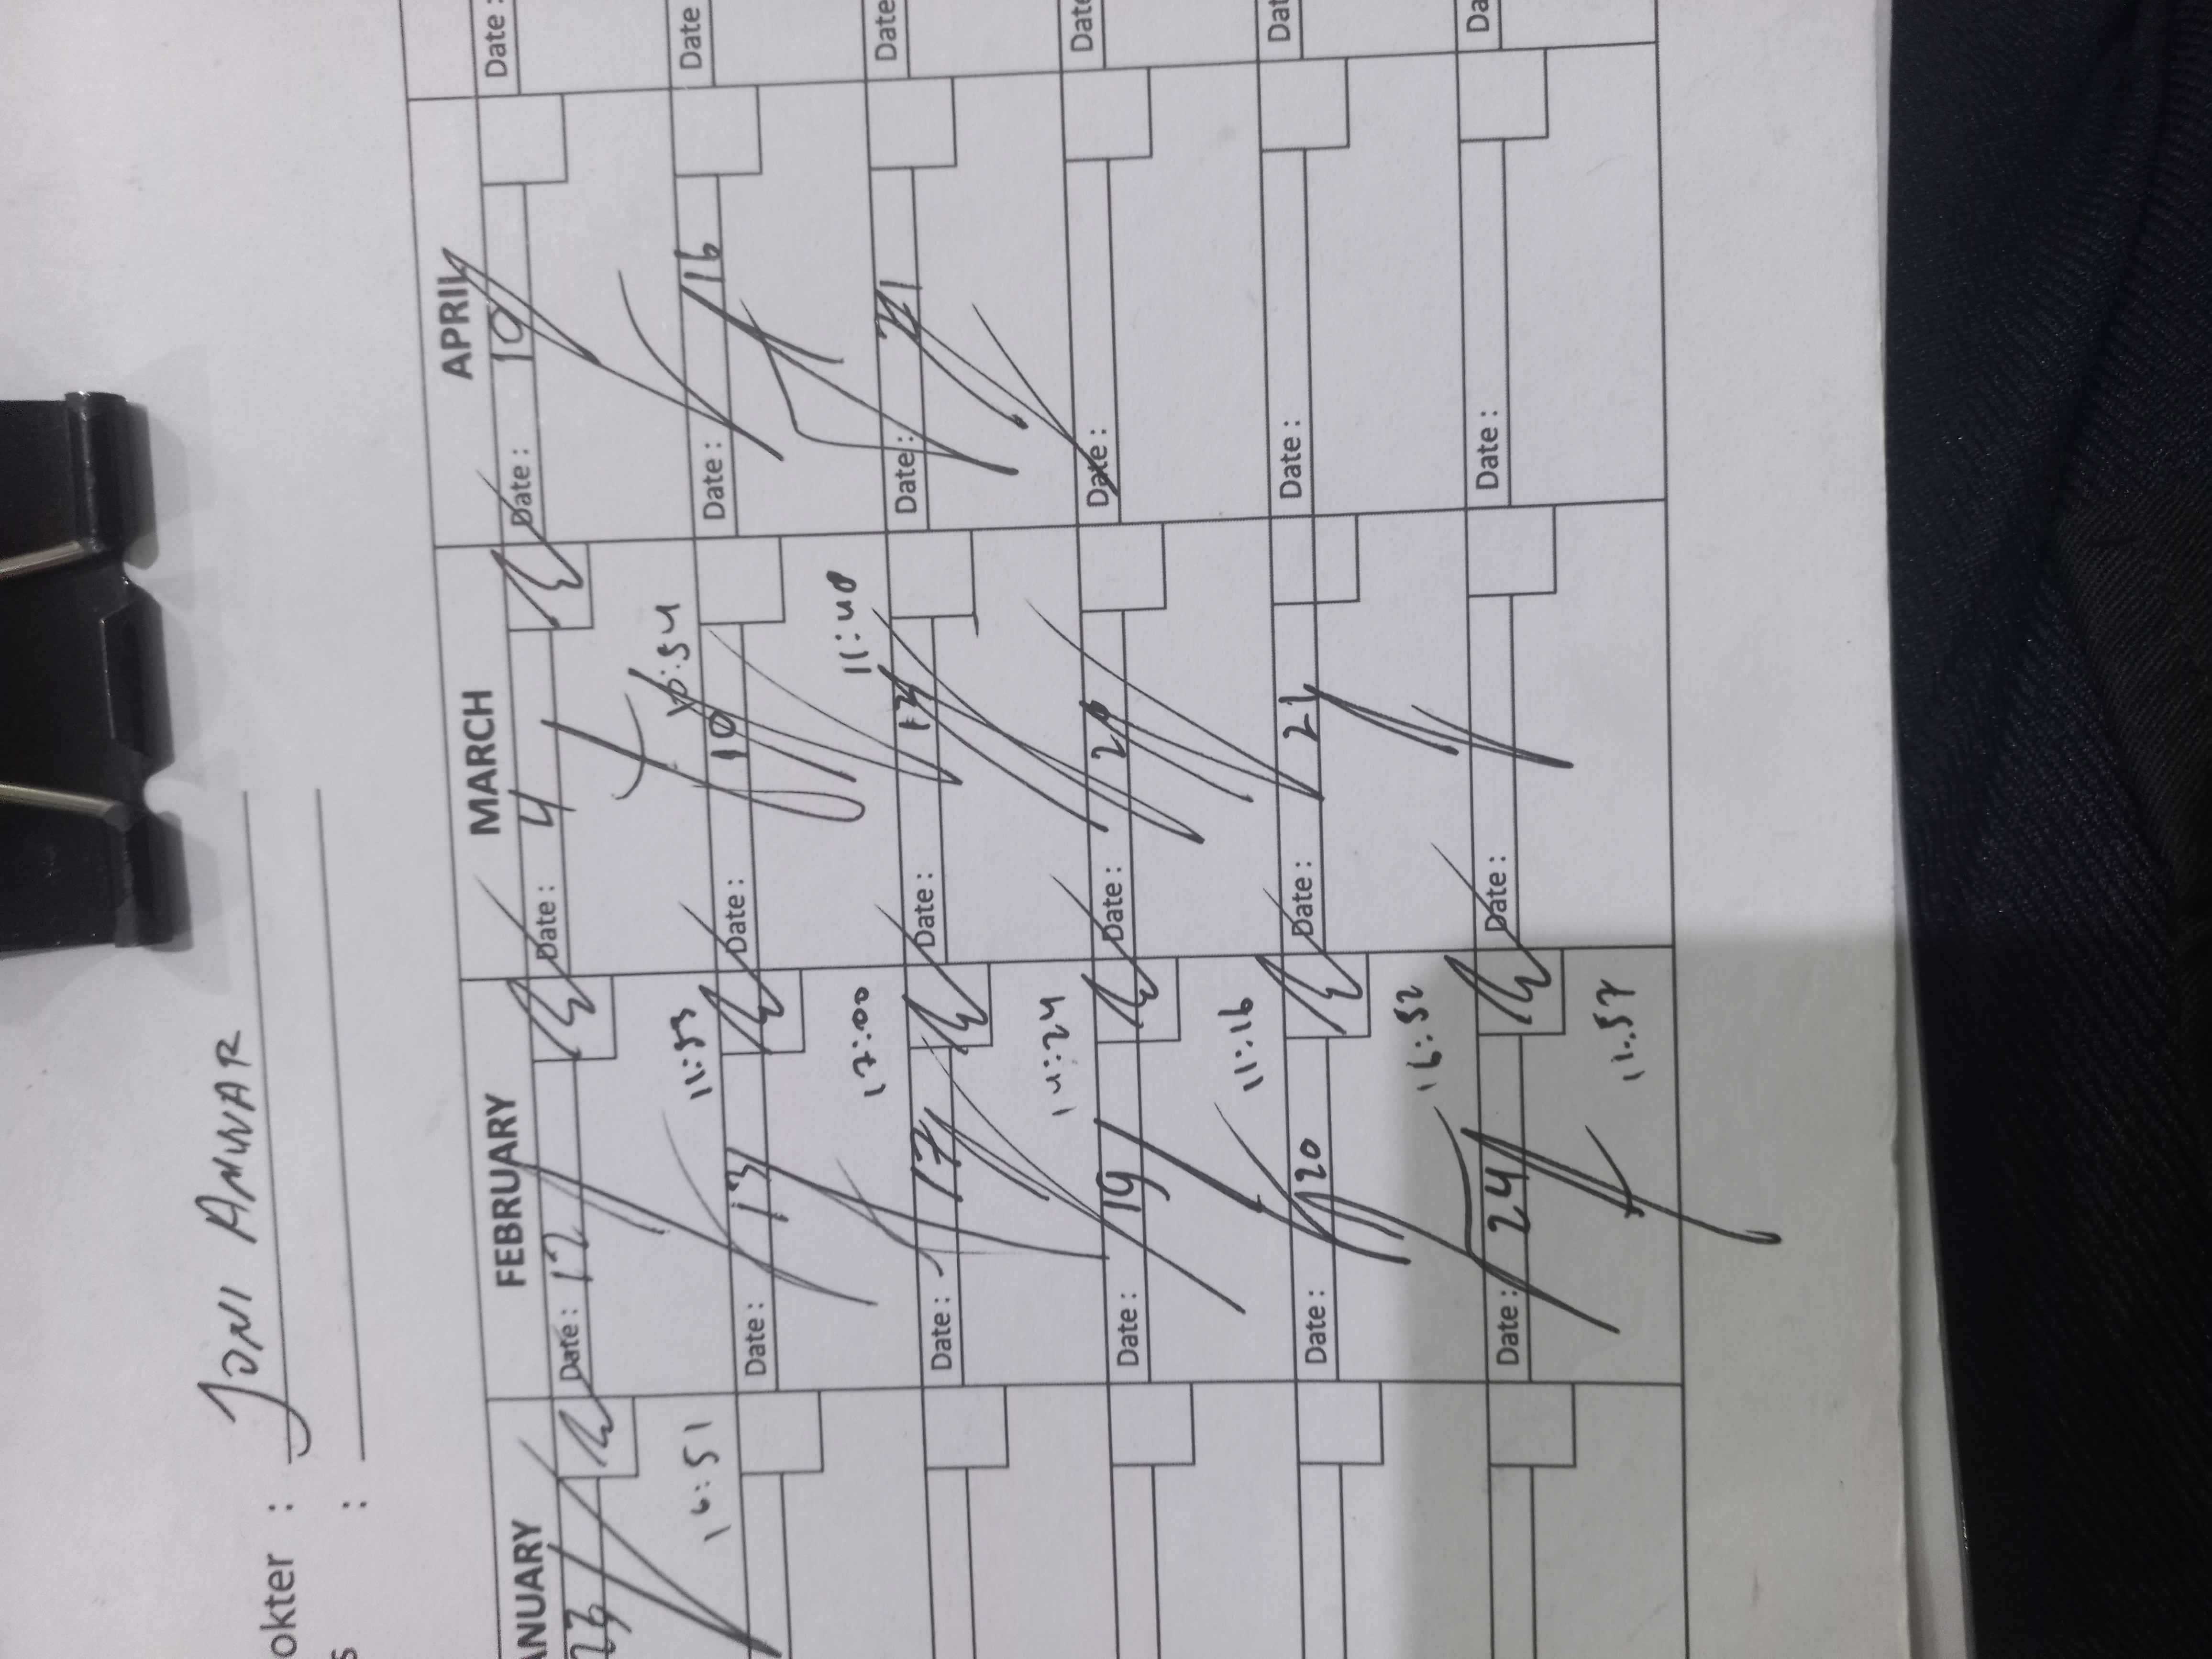 okter : JONI ANWAR
s :
ANUARY FEBRUARY MARCH APRIL
23 Date : 12 Date : 4 Date : 10 Date :
16:51 11:53 16:54
Date : 13 Date : 10 Date : 16 Date
17:00 11:40
Date : 17 Date : 13 Date : 21 Date
14:24
Date : 19 Date : 20 Date : Date
11:16
Date : 20 Date : 21 Date : Dat
16:52
Date : 24 Date : Date : Da
11:57